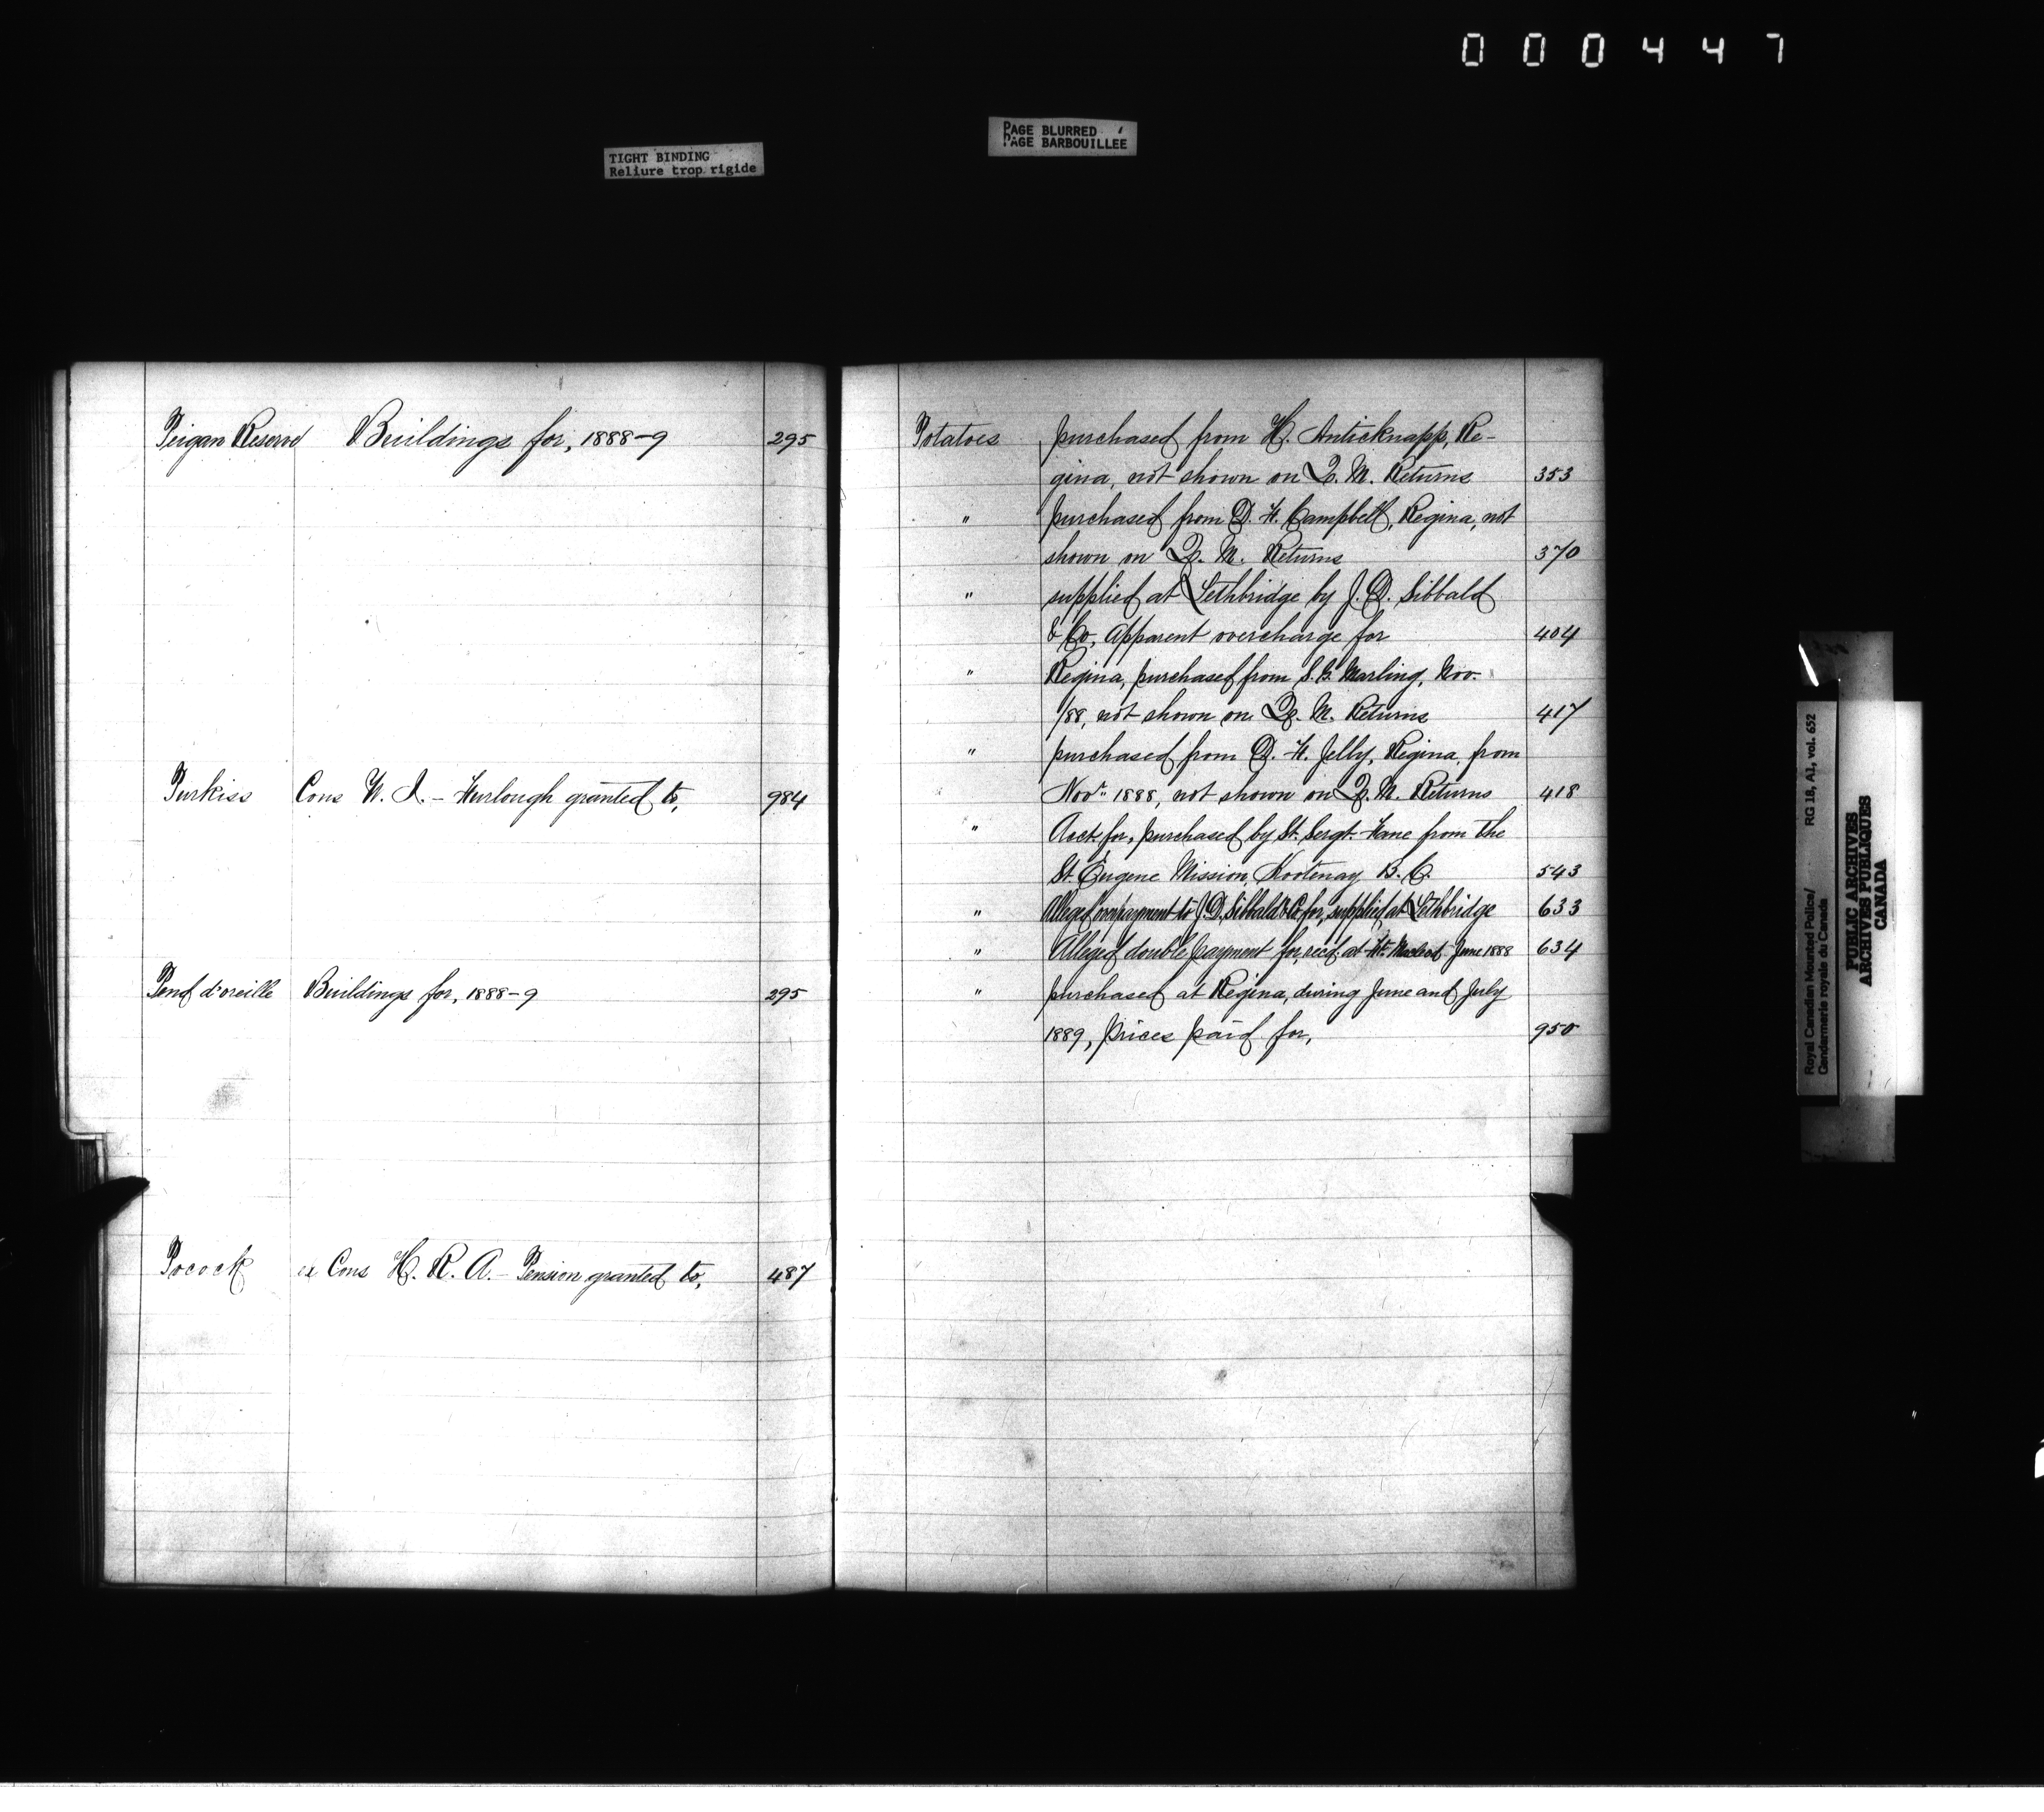 000447
TIGHT BINDING
Reliure trop rigide
PAGE BLURRED
PAGE BARBOUILLÉE
Peigan Reserve Buildings for, 1888-9 295
Purkiss Cons W. I. - Furlough granted to, 984
Pend d'oreille Buildings for, 1888-9 295
Pocock ex Cons H. R. A. - Pension granted to, 487
Potatoes purchased from H. Anticknapp, Re-
gina, not shown on Q. M. Returns 353
" purchased from D. H. Campbell, Regina, not
shown on Q. M. Returns 370
" supplied at Lethbridge by J. D. Sibbald
& Co, Apparent overcharge for 404
" Regina, purchased from S. B. Marling, Nov.
/88, not shown on Q. M. Returns 417
" purchased from D. H. Jelly, Regina, from
Novr. 1888, not shown on Q. M. Returns 418
" Acct. for, purchased by St. Sergt. Fane from the
St. Eugene Mission, Kootenay B. C. 543
" Alleged overpayment to J. D. Sibbald & Co for, supplied at Lethbridge 633
" Alleged double payment for, recd. at Ft. Macleod June 1888 634
" purchased at Regina, during June and July
1889, prices paid for, 950
Royal Canadian Mounted Police/ RG 18, A1, vol. 652
Gendarmerie royale du Canada
PUBLIC ARCHIVES
ARCHIVES PUBLIQUES
CANADA